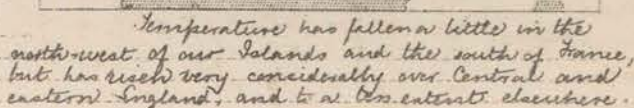 Temperature has fallen a little in the
north-west of our Islands and the south of France,
but has risen very considerably over Central and
eastern England, and to a less extent elsewhere.